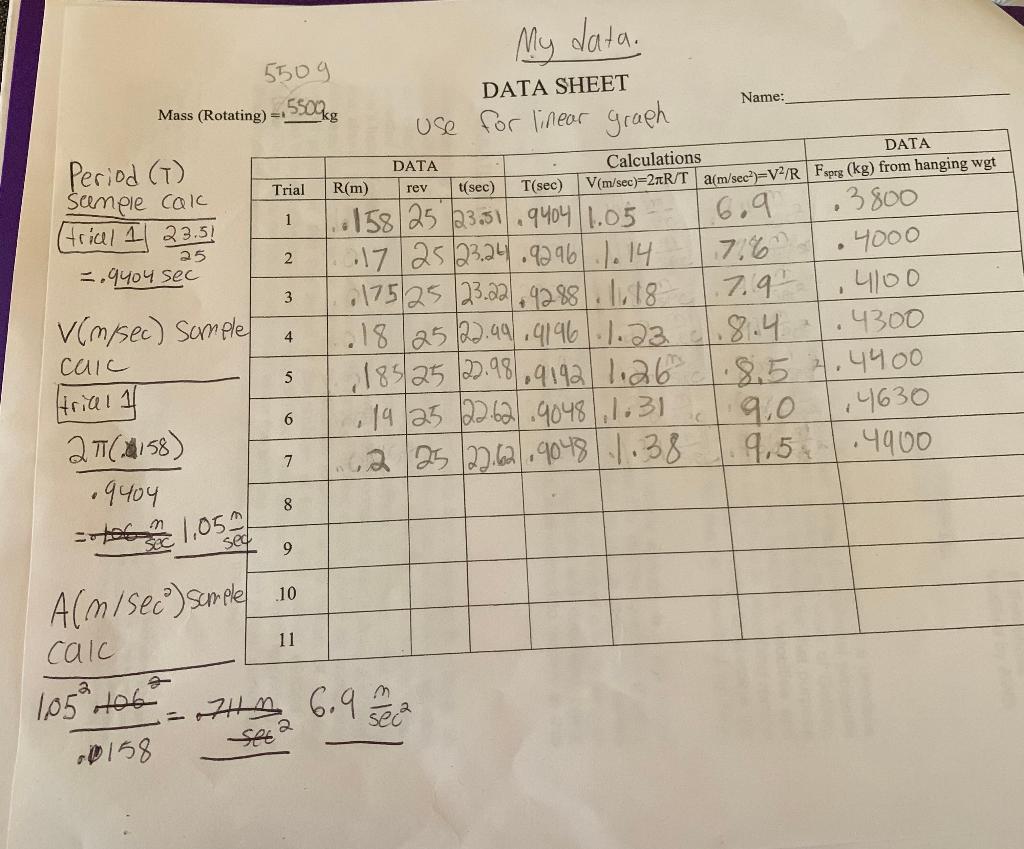 My data.
550g
DATA SHEET
Mass (Rotating) = .5500 kg
Name:
Use for linear graph
DATA Calculations DATA
Trial R(m) rev t(sec) T(sec) V(m/sec)=2πR/T a(m/sec²)=V²/R Fsprg (kg) from hanging wgt
1 .158 25 23.51 .9404 1.05 6.9 .3800
2 .17 25 23.24 .9296 1.14 7.6 .4000
3 .175 25 23.22 .9288 1.18 7.9 .4100
4 .18 25 22.99 .9196 1.23 8.4 .4300
5 .185 25 22.98 .9192 1.26 8.5 .4400
6 .19 25 22.62 .9048 1.31 9.0 .4630
7 .2 25 22.62 .9048 1.38 9.5 .4900
8
9
10
11
Period (T)
Sample calc
trial 1 23.51
25
= .9404 sec
V(m/sec) Sample
calc
trial 1
2π(.158)
.9404
= .106 m/sec 1.05 m/sec
A(m/sec²) Sample
calc
1.05² .106² = .711 m/sec² 6.9 m/sec²
.158